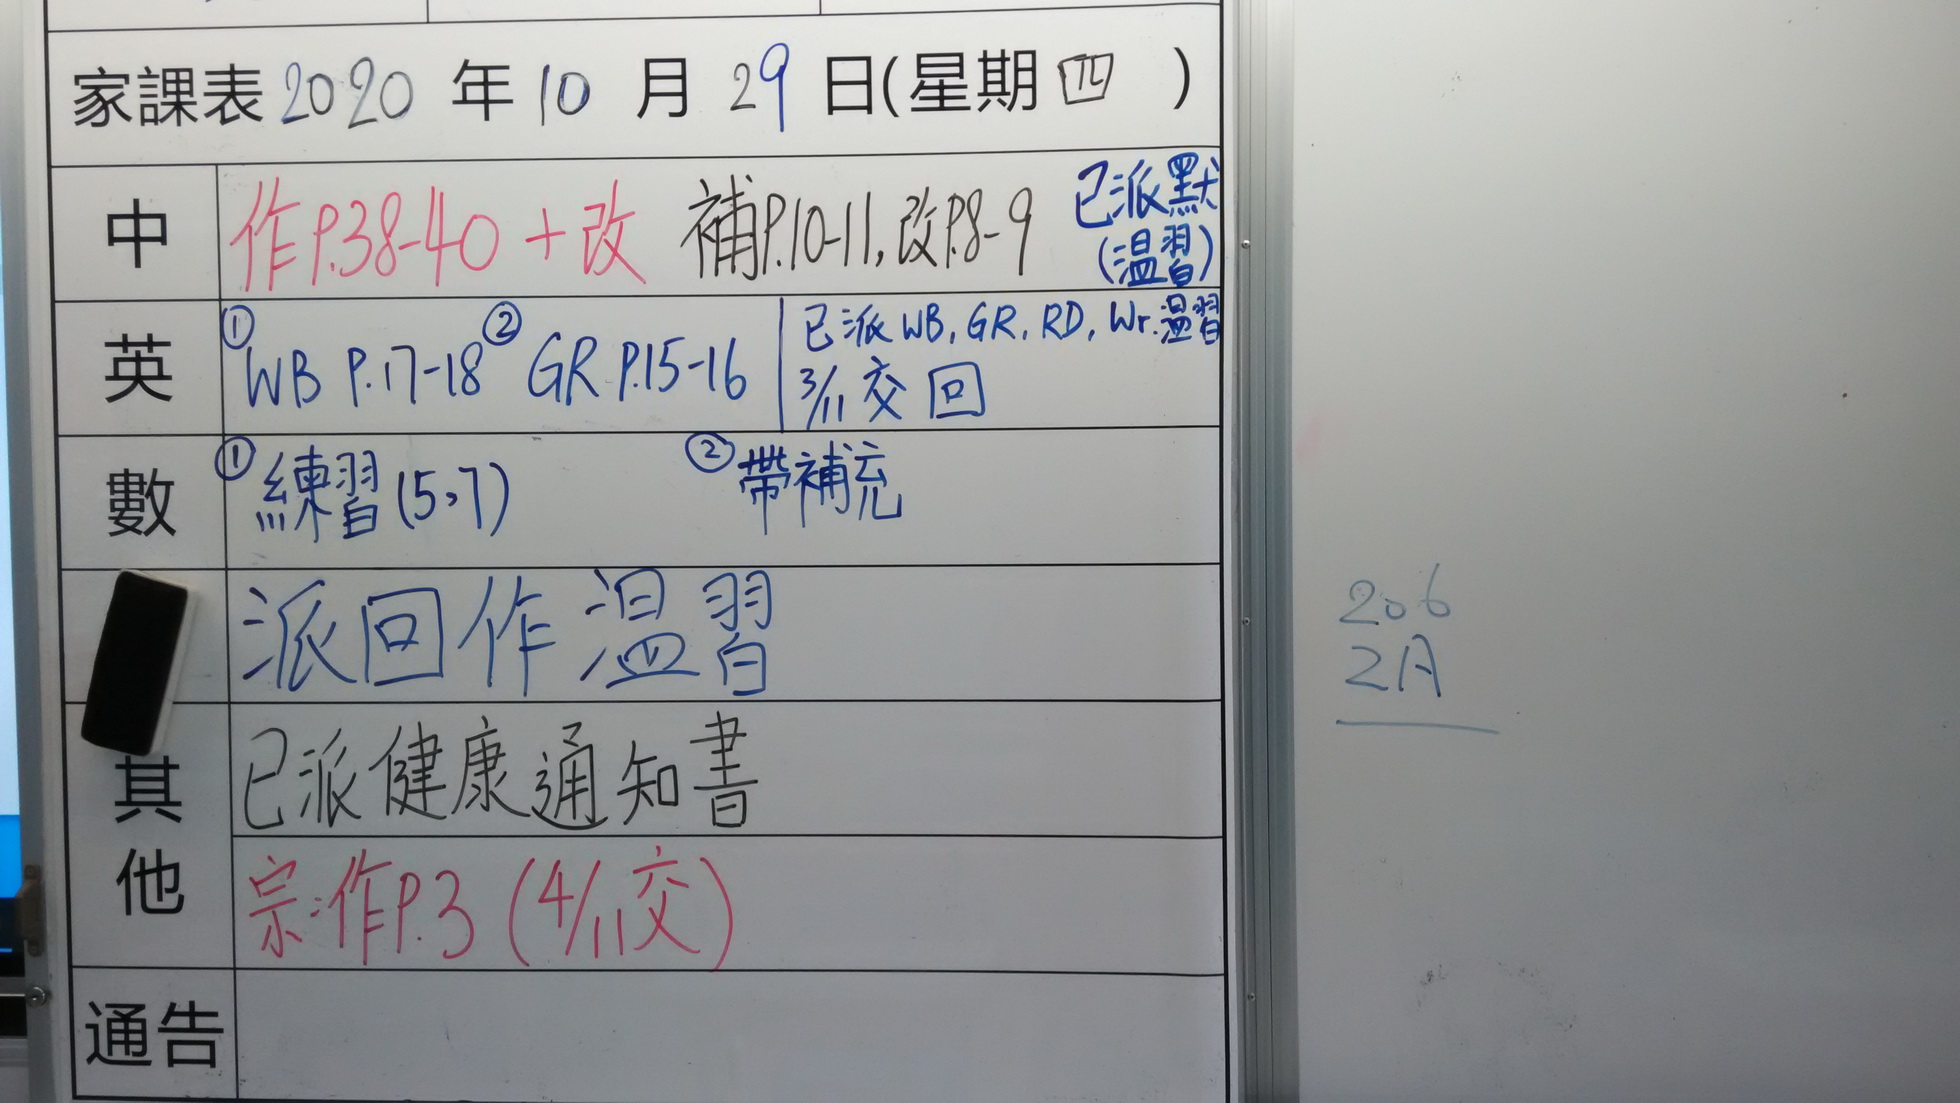 家課表 2020 年 10 月 29 日(星期四 )
中 作P.38-40 + 改 補P.10-11, 改P.8-9 已派默
(溫習)
英 ① WB P.17-18 ② GR P.15-16 已派WB, GR, RD, Wr.溫習
3/11 交回
數 ① 練習(5,7) ② 帶補充
派回作溫習
其他 已派健康通知書
宗:作P.3 (4/11交)
通告
206
2A